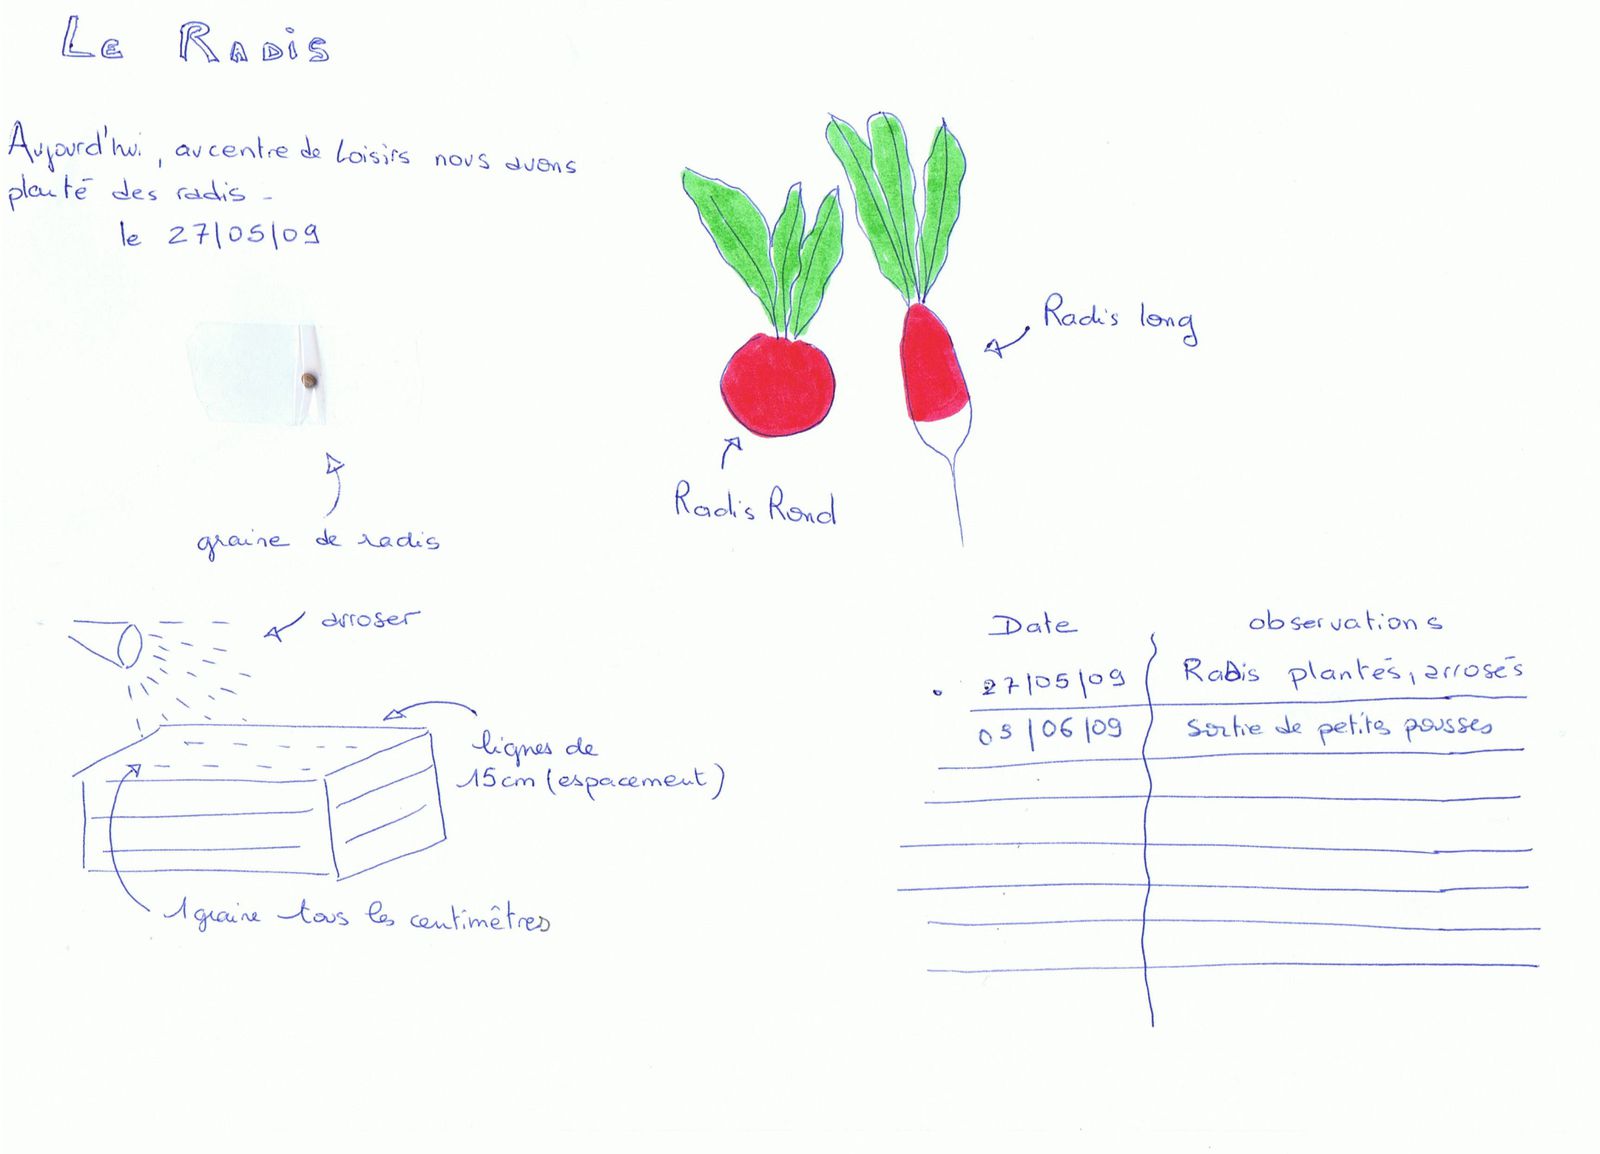 Le Radis
Aujourd'hui, au centre de Loisirs nous avons
planté des radis -
le 27/05/09
graine de radis
Radis Rond
Radis long
arroser
lignes de
15cm (espacement)
1 graine tous les centimètres
Date observations
. 27/05/09 Radis plantés, arrosés
03/06/09 Sortie de petites pousses